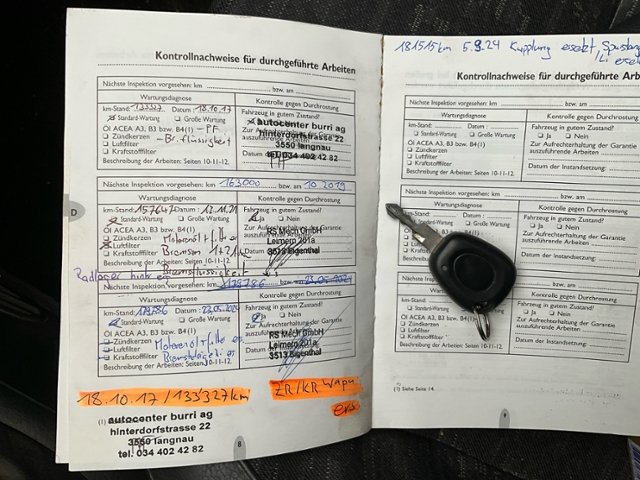 Kontrollnachweise für durchgeführte Arbeiten
Nächste Inspektion vorgesehen: km bzw. am
Wartungsdiagnose Kontrolle gegen Durchrostung
km-Stand: 133327 Datum: 18.10.17 Fahrzeug in gutem Zustand?
Standard-Wartung Große Wartung
Öl ACEA A3, B3 bzw. B4(1) - PF
Zündkerzen - Br.flüssigkeit
Luftfilter
Kraftstofffilter
Beschreibung der Arbeiten: Seiten 10-11-12.
autocenter burri ag
hinterdorfstrasse 22
3550 langnau
tel. 034 402 42 82
Nächste Inspektion vorgesehen: km 163000 bzw. am 10.2019
Wartungsdiagnose Kontrolle gegen Durchrostung
km-Stand: 157647 Datum: Fahrzeug in gutem Zustand?
Standard-Wartung Große Wartung Ja Nein
Öl ACEA A3, B3 bzw. B4(1) Zur Aufrechterhaltung der Garantie
Zündkerzen Motorenöl + Filter
Luftfilter Bremsen
Kraftstofffilter Bremsflüssigkeit
Beschreibung der Arbeiten: Seiten 10-11-12.
RS Mech GmbH
Leimern 201a
3513 Bigenthal
Radlager hinten
Nächste Inspektion vorgesehen: km 178786 bzw. am 23.05.2024
Wartungsdiagnose Kontrolle gegen Durchrostung
km-Stand: 178786 Datum: 23.05.2024 Fahrzeug in gutem Zustand?
Standard-Wartung Große Wartung Ja Nein
Öl ACEA A3, B3 bzw. B4(1) Zur Aufrechterhaltung der Garantie
Zündkerzen Motorenöl + Filter
Luftfilter
Kraftstofffilter
Beschreibung der Arbeiten: Seiten 10-11-12.
RS Mech GmbH
Leimern 201a
3513 Bigenthal
18.10.17/133'327km
ZR/KR Wapu
ers
(1)
autocenter burri ag
hinterdorfstrasse 22
3550 langnau
tel. 034 402 42 82
8
D
181515km 5.9.24 Kupplung ersetzt,
Kontrollnachweise für durchgeführte Arbeiten
Nächste Inspektion vorgesehen: km bzw. am
Wartungsdiagnose Kontrolle gegen Durchrostung
km-Stand: Datum: Fahrzeug in gutem Zustand?
Standard-Wartung Große Wartung Ja Nein
Öl ACEA A3, B3 bzw. B4(1) Zur Aufrechterhaltung der Garantie
Zündkerzen auszuführende Arbeiten:
Luftfilter
Kraftstofffilter Datum der Instandsetzung:
Beschreibung der Arbeiten: Seiten 10-11-12.
Nächste Inspektion vorgesehen: km bzw. am
Wartungsdiagnose Kontrolle gegen Durchrostung
Fahrzeug in gutem Zustand?
Ja Nein
Zur Aufrechterhaltung der Garantie
auszuführende Arbeiten:
Datum der Instandsetzung:
Kontrolle gegen Durchrostung
km-Stand: Fahrzeug in gutem Zustand?
Standard-Wartung Ja Nein
Öl ACEA A3, B3 bzw. B4(1) Zur Aufrechterhaltung der Garantie
Zündkerzen auszuführende Arbeiten:
Luftfilter
Kraftstofffilter Datum der Instandsetzung:
Beschreibung der Arbeiten: Seiten 10-11-12.
(1) Siehe Seite 14.
9